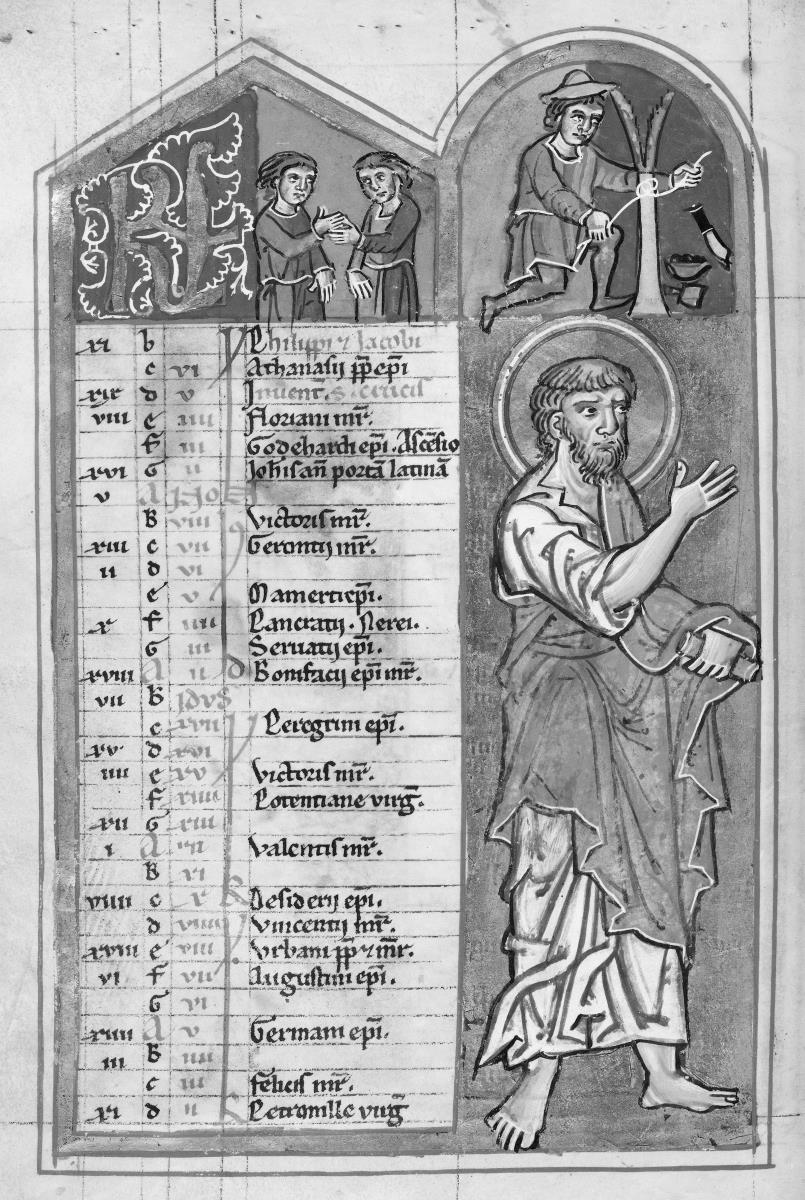 KL
xi b Philippi ⁊ Jacobi
c vi Athanasij pp epi
xix d v Inuent. s. crucis
viii e iiii Floriani mr.
f iii Godehardi epi. Ascēsio
xvi G ii Johis añ portā latinā
v A NON
B viii Victoris mr.
xiii c vii Gerontij mr.
ii d vi
e v Mamerti epi.
x f iiii Pancratij. Nerei.
G iii Seruatij epi.
xviii A ii Bonifacij epi mr.
vii B IDVS
c xvii Peregrini epi.
xv d xvi
iiii e xv Victoris mr.
f xiiii Potentiane virg.
xii G xiii
i A xii Valentis mr.
B xi
viiii c x Desiderij epi.
d viiii Vincentij mr.
xvii e viii Vrbani pp ⁊ mr.
vi f vii Augustini epi.
G vi
xiiii A v Germani epi.
iii B iiii
c iii felicis mr.
xi d ii Petronille virg